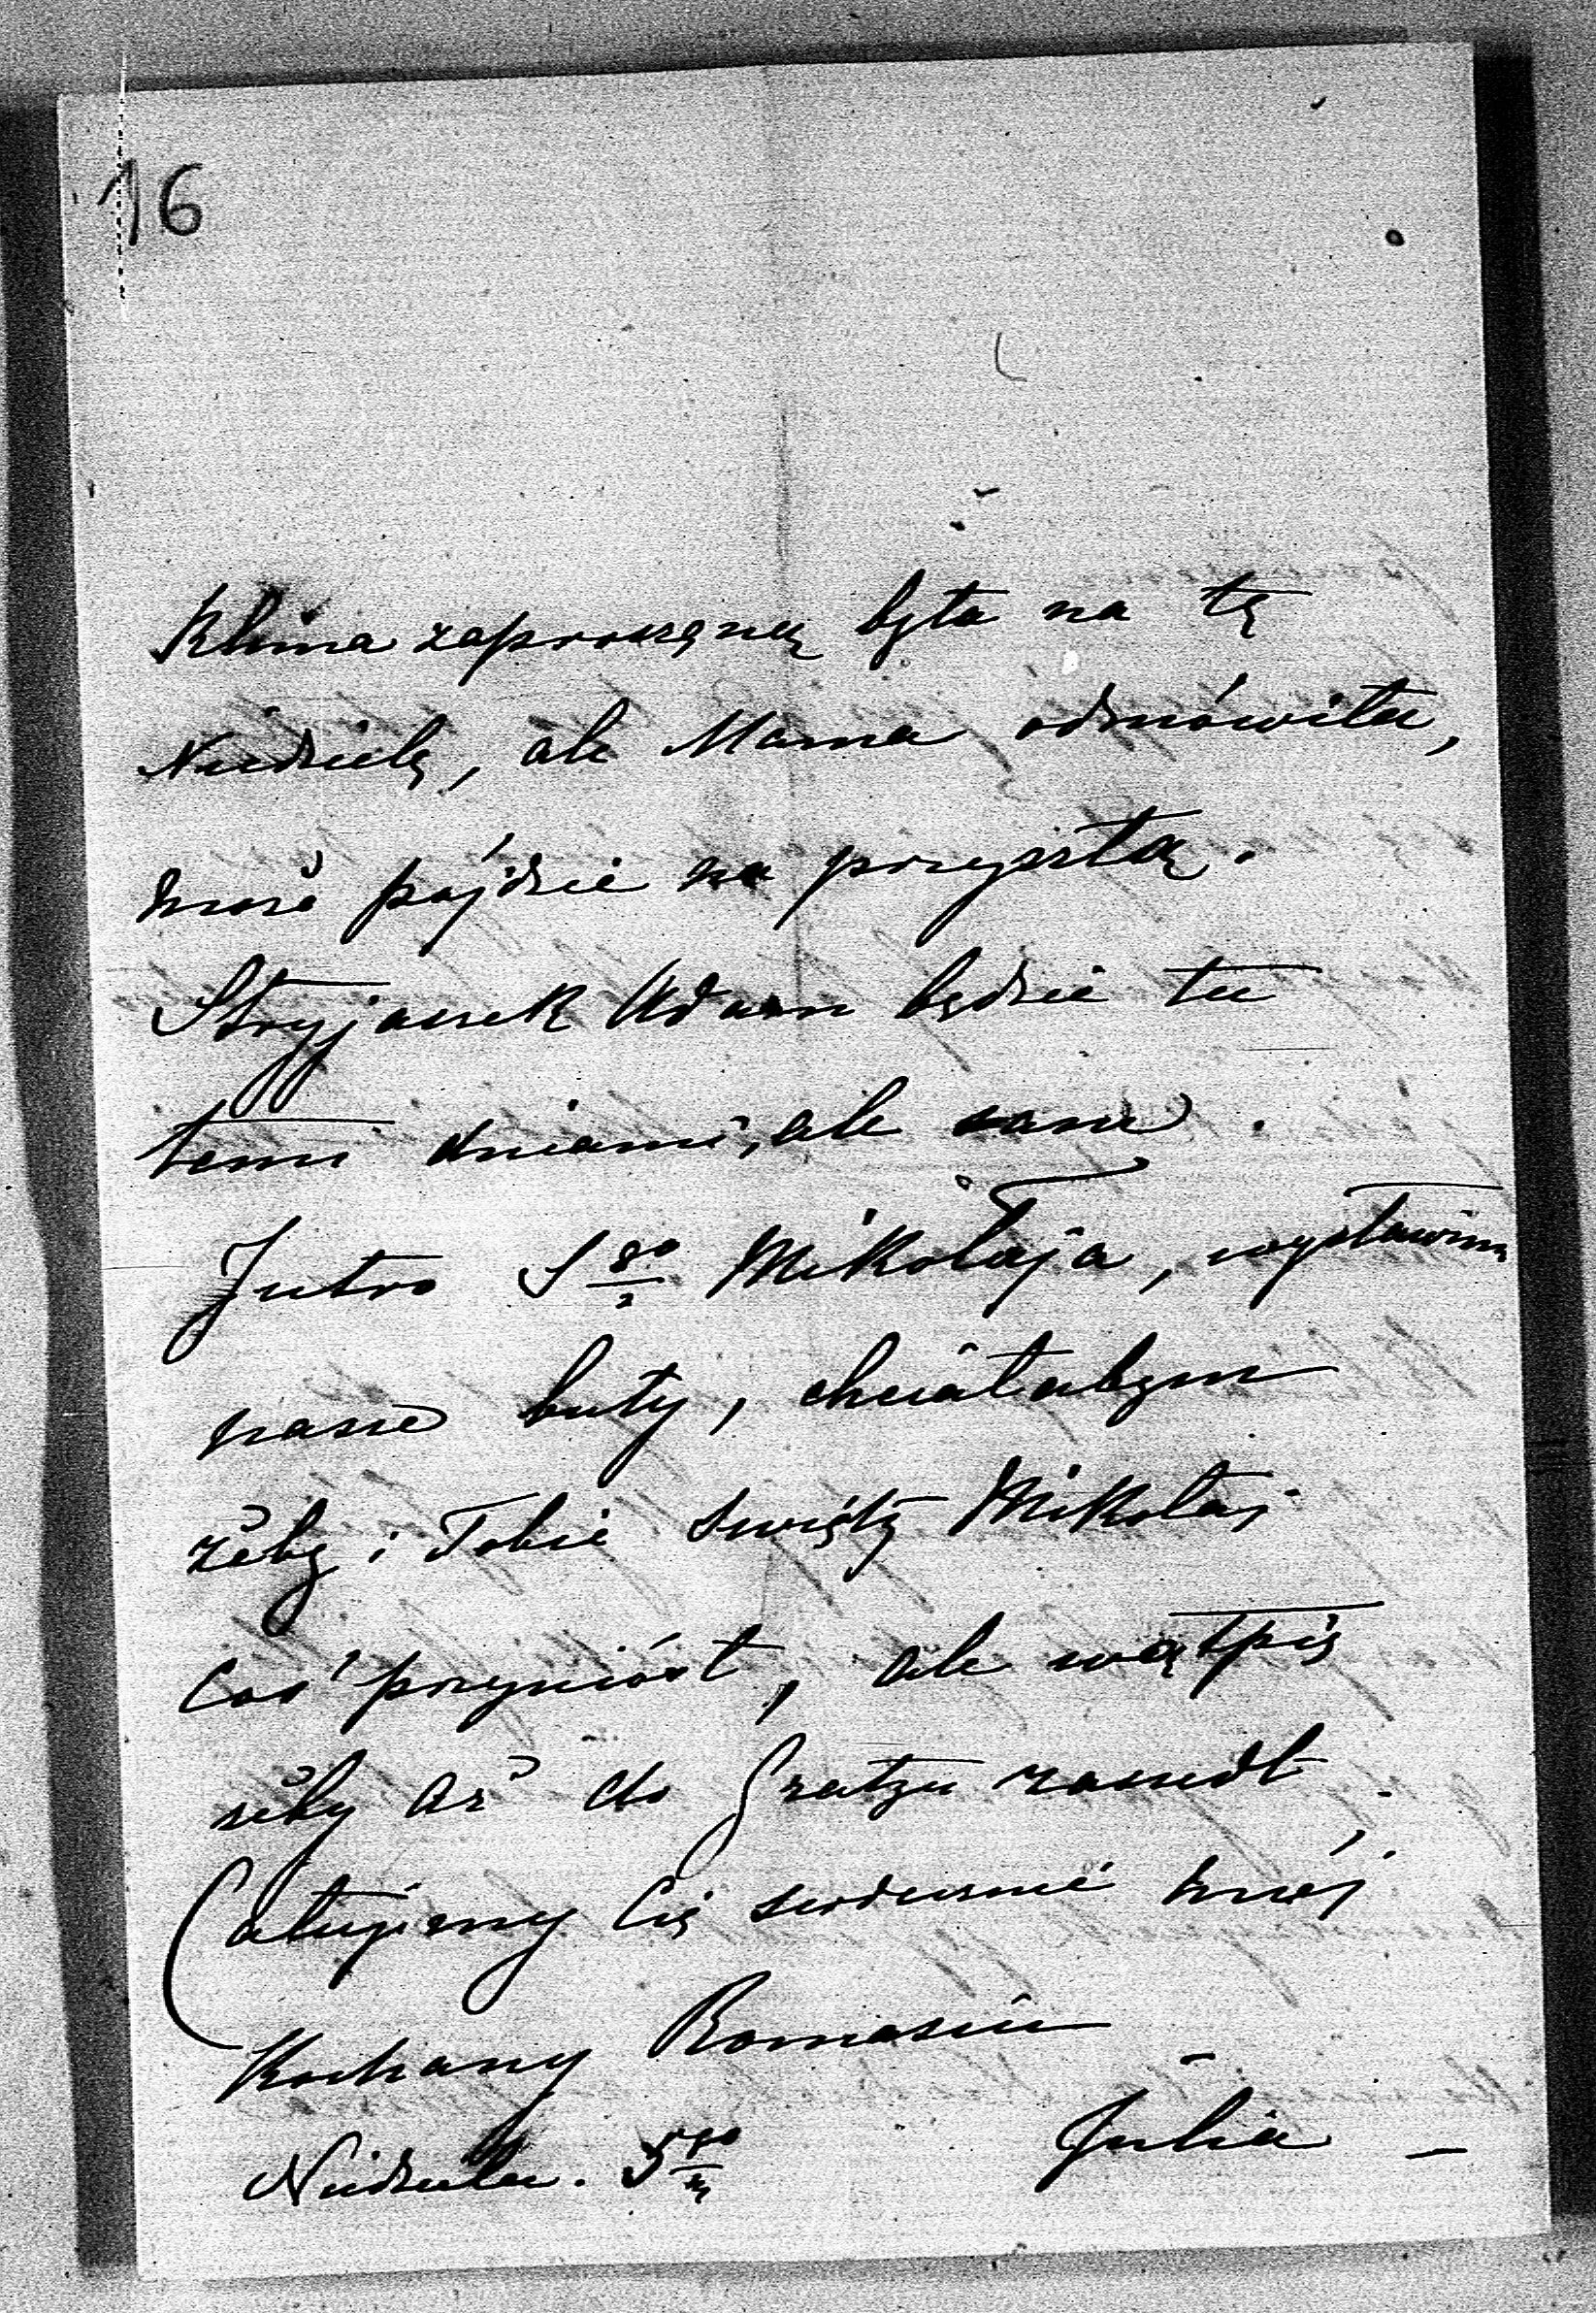 16
Klima zaproszoną była na tę
Niedzielę, ale Mama odmówiła,
może pójdzie na przyszłą.
Stryjaszek Adam będzie tu
temi dniami, ale sam.
Jutro Sgo Mikołaja, wystawimy
nasze buty, chciałabym
żeby i Tobie Święty Mikołaj
coś przyniósł, ale wątpię
żeby aż do Gratzu zaszedł.
Całujemy Cię serdecznie mój
Kochany Romasiu
Julia
Niedziela. 5go